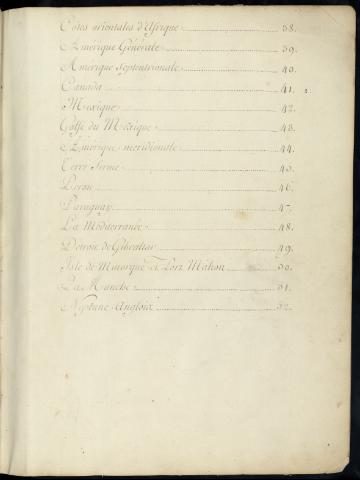 Côtes orientales d'Afrique 38.
Amérique Générale 39.
Amérique Septentrionale 40.
Canada 41.
Mexique 42.
Golfe du Mexique 43.
Amérique méridionale 44.
Terre ferme 45.
Perou 46.
Paraguay 47.
La Méditerranée 48.
Detroit de Gibraltar 49.
Isle de Minorque et Port Mahon 50.
La Manche 51.
Neptune Anglois 52.